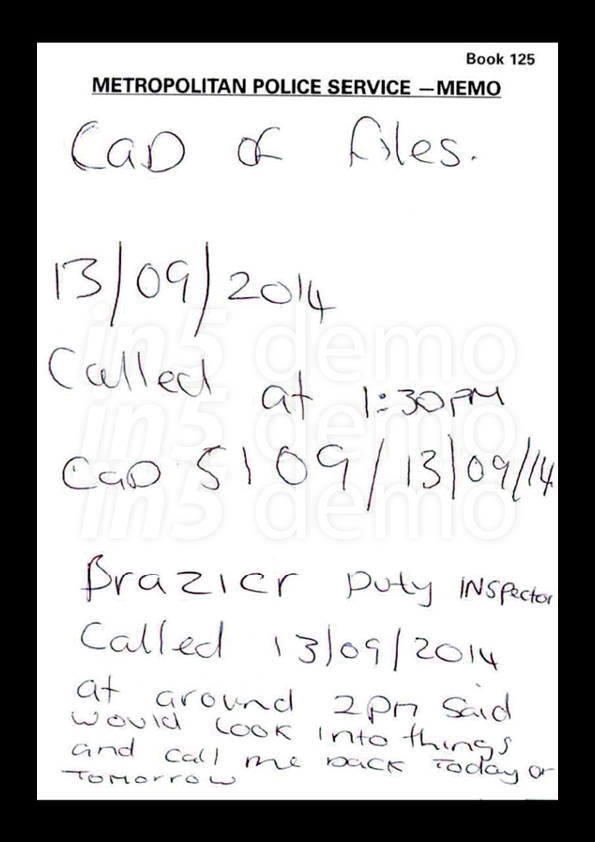 Book 125
METROPOLITAN POLICE SERVICE — MEMO
CaD of files.
13/09/2014
Called at 1:30PM
CaD 5109/13/09/14
Brazier Duty INSPector
Called 13/09/2014
at around 2pm said
would Look into things
and call me back Today or
Tomorrow
in5 demo
in5 demo
in5 demo